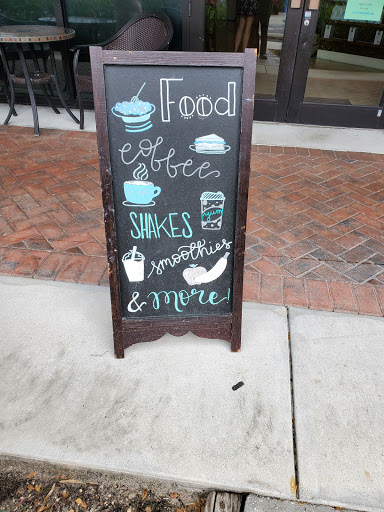 Food
coffee
yum
SHAKES
smoothies
& more!